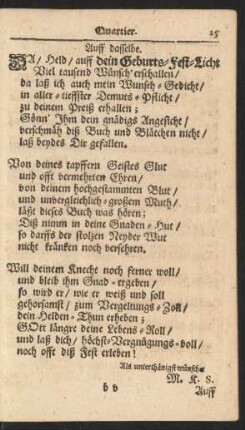 Quartier. 25
Auff dasselbe.
DA/ Held/ auff dein Geburts-Fest-Licht
Viel tausend Wünsch' erschallen/
da laß ich auch mein Wunsch-Gedicht/
in aller-tieffster Demuts-Pflicht/
zu deinem Preiß erhallen;
Gönn' Ihm dein gnädigs Angesicht/
verschmäh diß Buch und Blätchen nicht/
laß beydes Dir gefallen.
Von deines tapffern Geistes Glut
und offt vermehrten Ehren/
von deinem hochgestammten Blut/
und unvergleichlich-großem Muth/
läßt dieses Buch was hören;
Diß nimm in deine Gnaden-Hut/
so darffs der stolzen Neyder Wut
nicht kränken noch versehren.
Will deinem Knecht noch ferner woll/
und bleib ihm Gnad-ergeben/
so wird er/ wie er weiß und soll
gehorsamst/ zum Vergeltungs-Zoll/
dein Helden-Thun erheben;
GOtt längre deine Lebens-Roll/
und laß dich/ höchst-Vergnügungs-voll/
noch offt diß Fest erleben!
Als unterthänigst wünschet
M. K. S.
b v
Auff